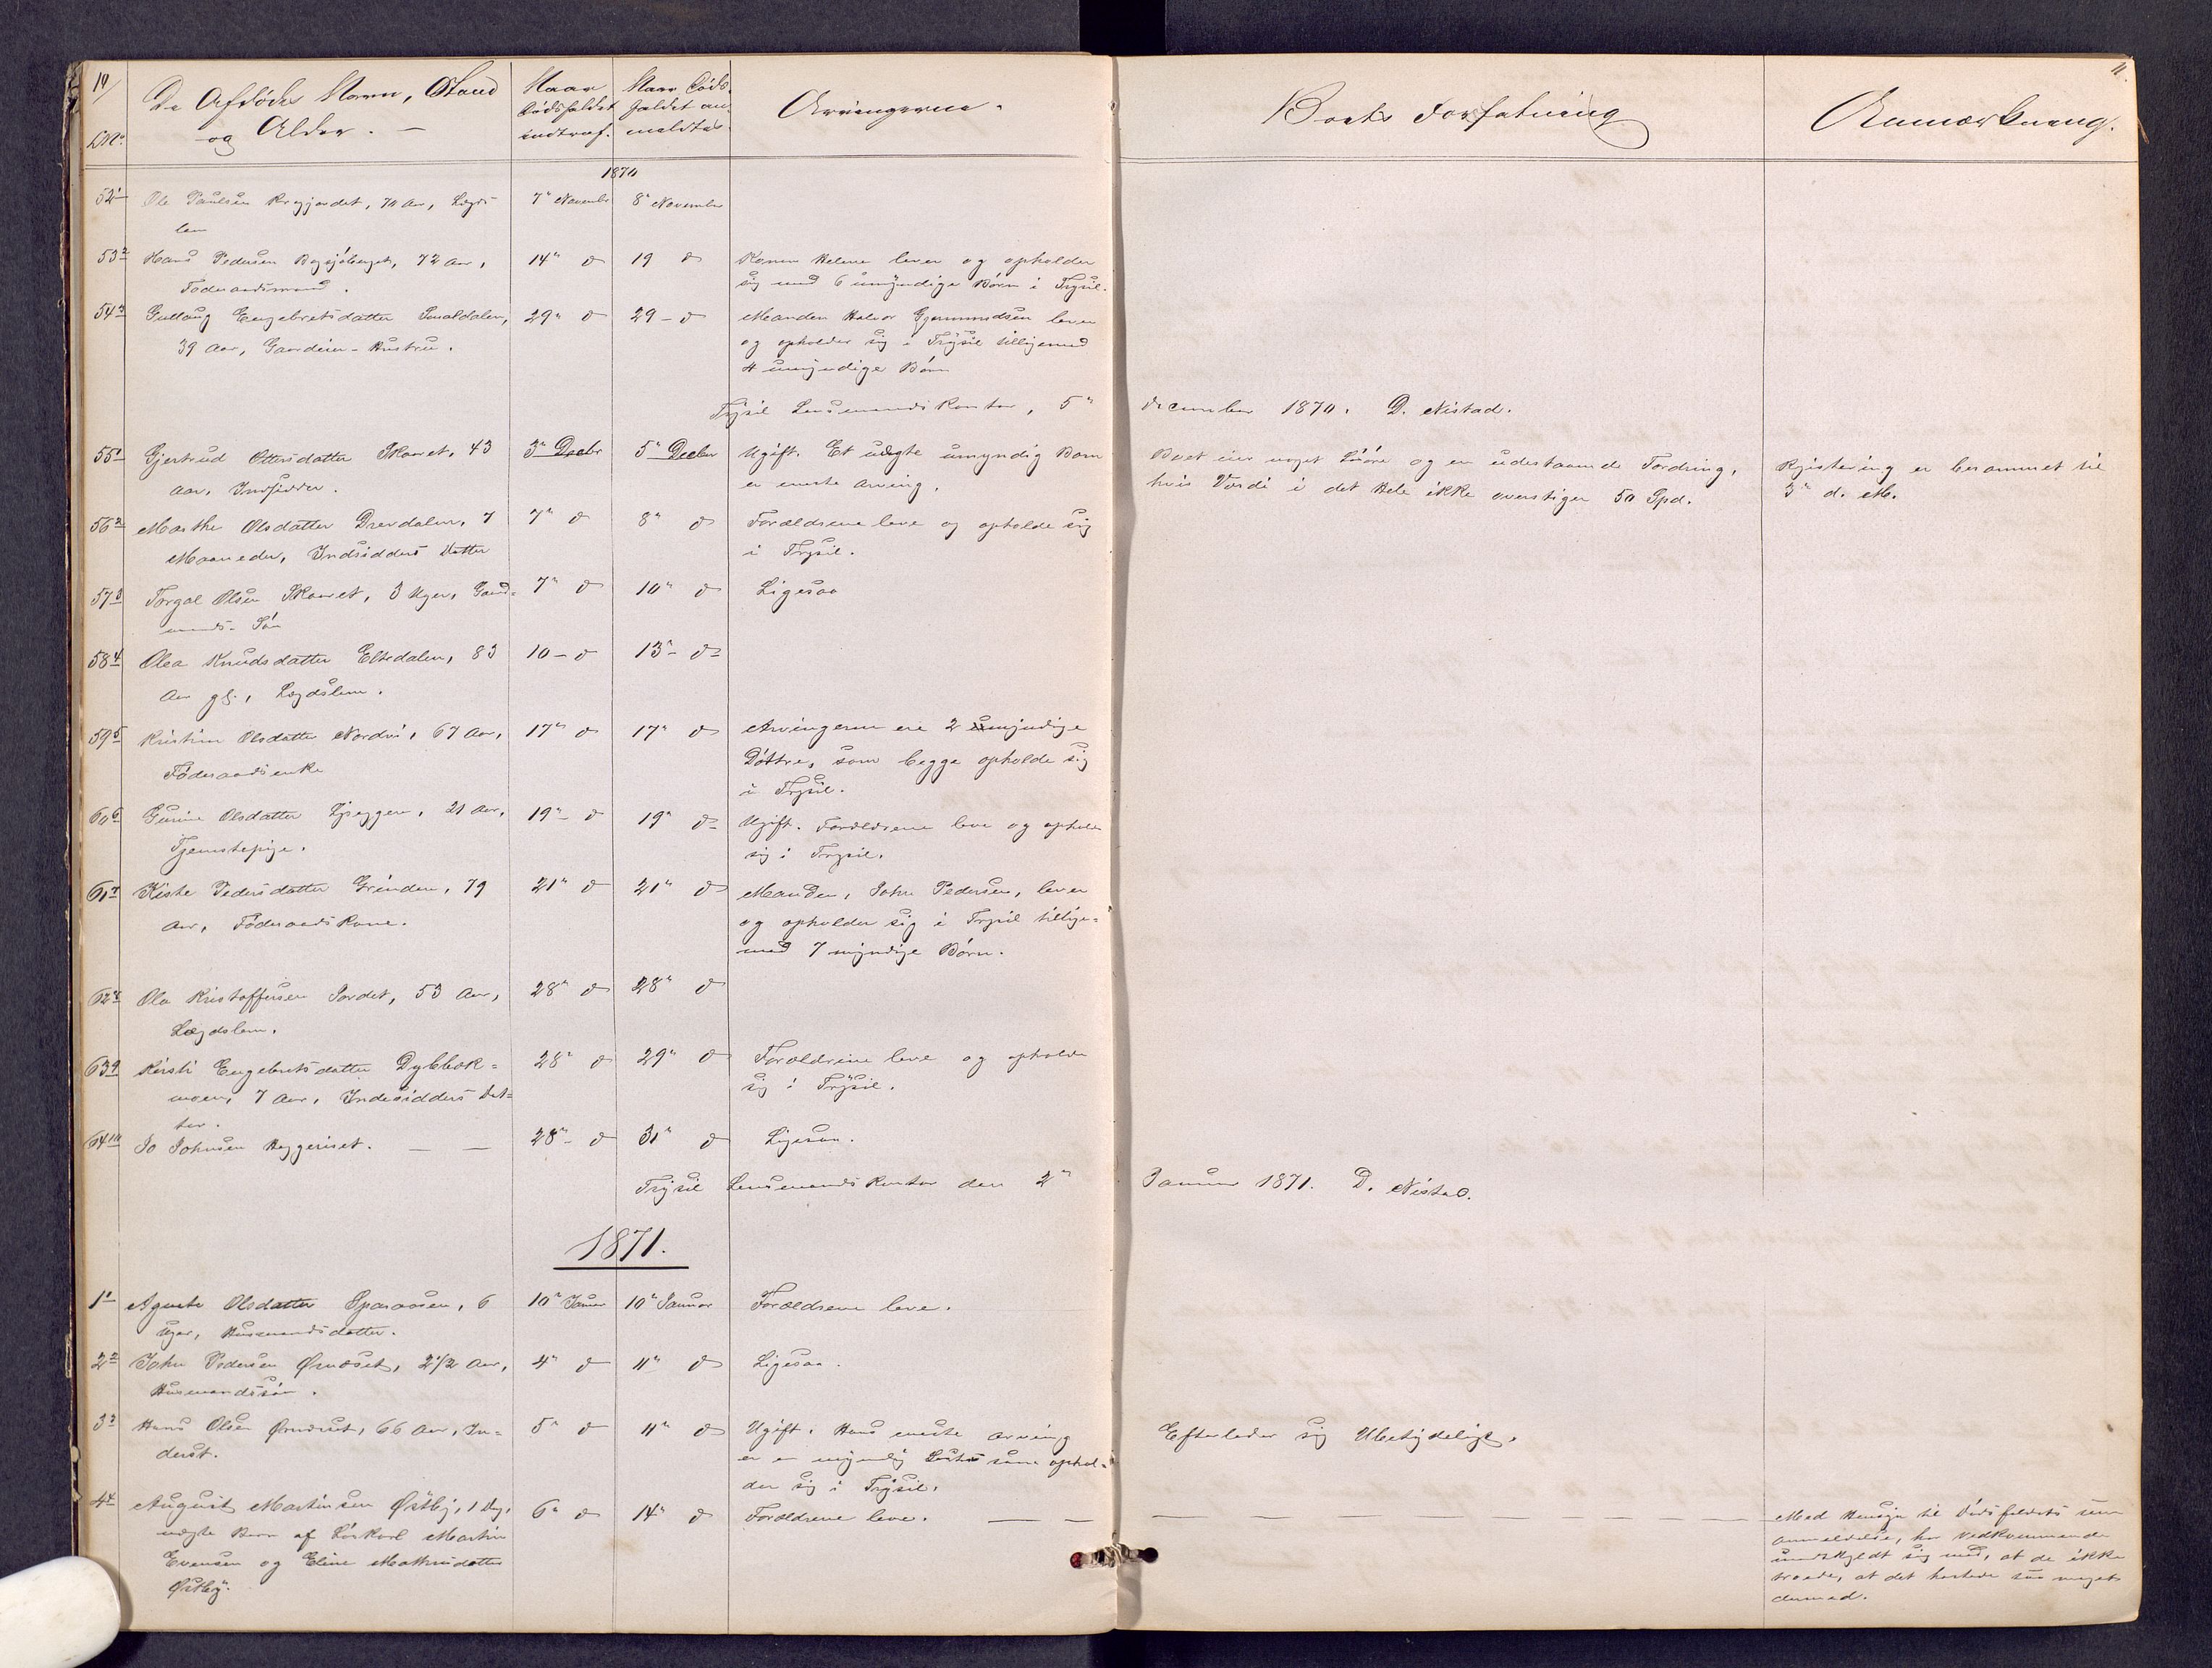 10/
LNo.
De Afdødes Navn, Stand
og Alder. —
Naar
Dødsfaldet
indtraf.
Naar Døds-
faldet an-
meldtes.
Arvingerne.
Boets Forfatning
Anmærkning.
11.
1870
52 1 Ole Paulsen 70 Aar, Lægds-
lem
7" Novembr 8" November
53 2 Hans Pedersen 72 Aar,
Føderaadsmand.
14" d 19 d
Konen Helene lever og opholder
sig med 6 umyndige Børn i Trysil.
54 3 Gullaug Engebretsdatter
39 Aar, Gaardeier-Hustru.
29" d 29 - d
Manden Halvor Gjermundsen lever
og opholder sig i Trysil tilligemed
4 umyndige Børn
Trysil Lensmandskontor, 5"
december 1870. D. Nistad.
55 1 Gjertrud Ottersdatter Skaaret, 43
Aar, Indsidder.
3" Decbr 5" Decbr
Ugift. Et uægte umyndig Barn
er eneste Arving.
Boet eier noget Løsøre og en udestaaende Fordring,
hvis Værdi i det Hele ikke overstiger 50 Spd.
Registrering er berammet til
3" d. M.
56 2 Marthe Olsdatter Drevdalen, 7
Maaneder, Indsidders Datter
7" d 8" d
Forældrene leve og opholde sig
i Trysil.
57 3 Torgal Olsen Skaaret, 3 Uger, Gaard-
mands-Søn
7" d 10" d
Ligesaa
58 4 Olea Knudsdatter Eltedalen, 83
Aar gl., Lægdslem.
10 - d 13" d
59 5 Kristine Olsdatter Nordvi, 67 Aar,
Føderaadsenke
17" d 17" d
Arvingerne ere 2 umyndige
Døttre, som begge opholde sig
i Trysil.
60 6 Gurine Olsdatter 21 Aar,
Tjenestepige.
19" d 19" d
Ugift. Forældrene leve og opholde
sig i Trysil.
61 7 Kiste Pedersdatter Grinden, 79
Aar, Føderaadskone.
21" d 21" d
Manden, John Pedersen, lever
og opholder sig i Trysil tillige-
med 7 myndige Børn.
62 8 Ola Kristoffersen Jordet, 53 Aar,
Lægdslem.
28" d 28" d
63 9 Kirsti Engebretsdatter Dybbæk-
moen, 7 Aar, Indesidders Dat-
ter.
28" d 29" d
Forældrene leve og opholde
sig i Trysil.
64 10 Jo Johnsen Heggeriset. — —
28" d 31" d
Ligesaa.
Trysil Lensmandskontor den 2"
Januar 1871. D. Nistad.
1871.
1 1 Agnete Olsdatter Sparaasen, 6
Uger, Husmandsdatter.
10" Januar 10" Januar
Forældrene leve.
2 2 John Pedersen Ørnæset, 2 1/2 Aar,
Husmandssøn.
4" d 11" d
Ligesaa.
3 3 Hans Olsen Ørnæset, 66 Aar, In-
derst.
5" d 11" d
Ugift. Hans eneste Arving
er en myndig Søster som ophol-
der sig i Trysil.
Efterlader sig Ubetydeligt.
4 4 August Martinsen Østby, 1 Dag,
uægte Barn af Løskarl Martin
Evensen og Eline Mathisdatter
Østby.
6" d 14" d
Forældrene leve. — —
Med Hensyn til Dødsfaldets sene
anmeldelse, har vedkommende
undskyldt sig med, at de ikke
troede, at det hastede saa meget
dermed.